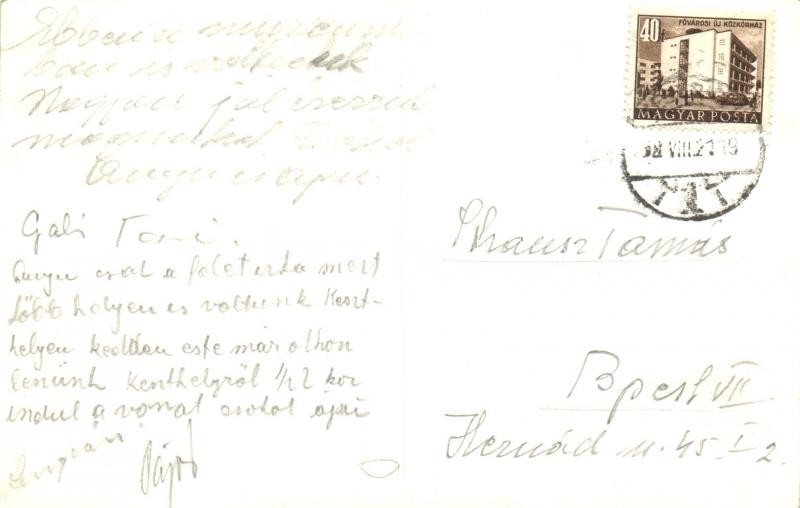 Ebben a múzeum
ban is voltunk
Nagyon jól érezzük
magunkat Csókol
Anyu és apu
Gabi Tomi
Anyu csak a felét írta mert
több helyen is voltunk Keszt-
helyen kedden este már othon
leszünk Keszthelyről 1/2 2 kor
indul a vonat csókol apu
40
FŐVÁROSI ÚJ KÖZKÓRHÁZ
MAGYAR POSTA
VIII.21
Strausz Tamás
Bpest VII
Hernád u. 45. I 2.